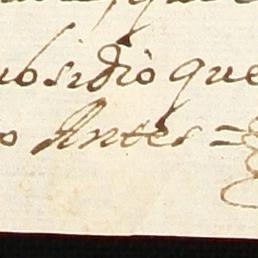 ubsidio que
o Antes =